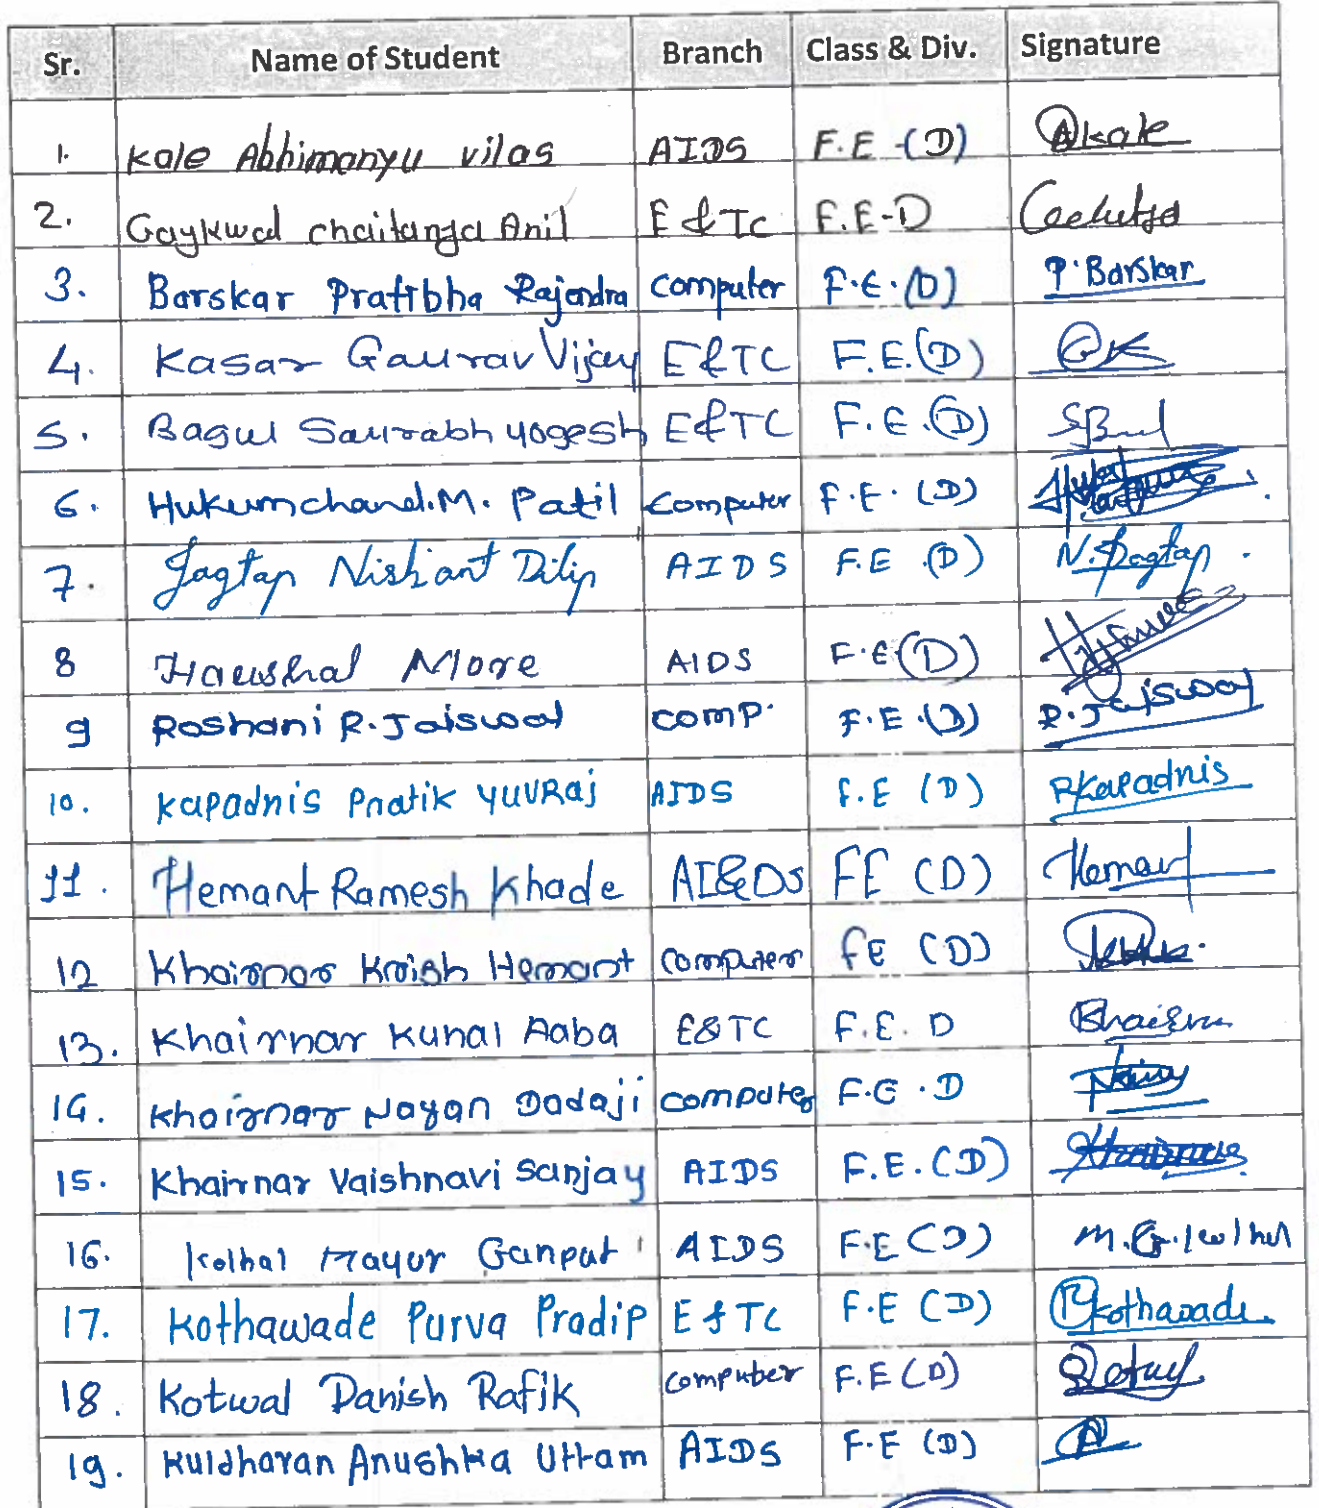 Sr. Name of Student Branch Class & Div. Signature
1. Kale Abhimanyu vilas AIDS F.E (D) Akale
2. Gaykwad chaitanya Anil E & Tc F.E-D
3. Barskar Pratibha Rajendra computer F.E.(D) P. Barskar
4. Kasar Gaurav Vijay E&TC F.E.(D) GK
5. Bagul Saurabh yogesh E&TC F.E.(D)
6. Hukumchand.M. Patil computer F.E. (D)
7. Jagtap Nishant Dilip AIDS F.E (D) N.Jagtap.
8 Harshal More AIDS F.E(D)
9 Roshani R.Jaiswal comp. F.E.(D) R.Jaiswal
10. Kapadnis Pratik YUVRaj AIDS F.E (D) Pkapadnis
11. Hemant Ramesh Khade AI&DS FE (D) Hemant
12 Khairnar Krish Hemant computer FE (D)
13. Khairnar Kunal Aaba E&TC F.E. D
14. Khairnar Nayan Dadaji computer F.E.D
15. Khairnar Vaishnavi Sanjay AIDS F.E.(D)
16. Kolhal Mayur Ganpat AIDS F.E(D)
17. Kothawade Purva Pradip E&TC F.E (D) Pkothawade
18. Kotwal Danish Rafik computer F.E(D)
19. Kuldharan Anushka Uttam AIDS F.E (D)